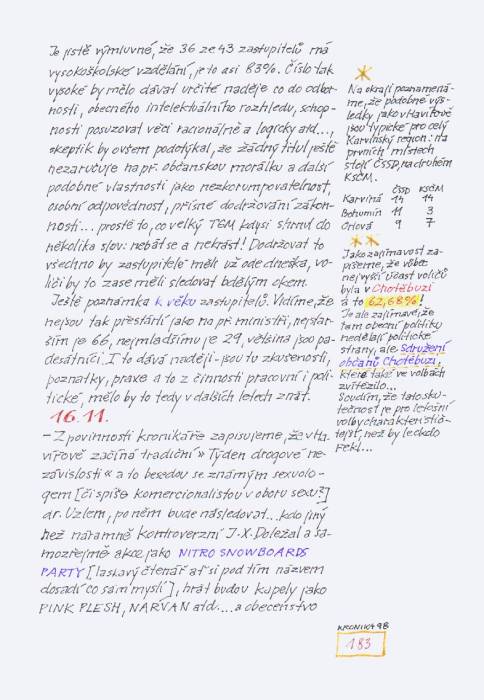 Je jistě výmluvné, že 36 ze 43 zastupitelů má
vysokoškolské vzdělání, je to asi 83%. Číslo tak
vysoké by mělo dávat určité naděje co do odbor-
nosti, obecného intelektuálního rozhledu, schop-
nosti posuzovat věci racionálně a logicky atd...,
skeptik by ovšem podotýkal, že žádný titul ještě
nezaručuje např. občanskou morálku a další
podobné vlastnosti jako nezkorumpovatelnost,
osobní odpovědnost, přísné dodržování zákon-
nosti... prostě to, co velký TGM kdysi shrnul do
několika slov: nebát se a nekrást! Dodržovat to
všechno by zastupitelé měli už ode dneška, vo-
liči by to zase měli sledovat bdělým okem.
Ještě poznámka k věku zastupitelů. Vidíme, že
nejsou tak přestárlí jako např. ministři, nejstar-
ším je 66, nejmladšímu je 29, většina jsou pa-
desátníci. I to dává naději - jsou tu zkušenosti,
poznatky, praxe a to z činnosti pracovní i poli-
tické, mělo by to tedy v dalších letech znát.
16.11.
- Z povinnosti kronikáře zapisujeme, že v Ha-
vířově začíná tradiční » Týden drogové ne-
závislosti « a to besedou se známým sexuolo-
gem [či spíše komercionalistou v oboru sexu?]
dr. Uzlem, po něm bude následovat... kdo jiný
než náramně kontroverzní J.X. Doležal a sa-
mozřejmě akce jako NITRO SNOWBOARDS
PARTY [laskavý čtenář ať si pod tím názvem
dosadí co sám myslí], hrát budou kapely jako
PINK FLESH, NARVAN atd.... a obecenstvo
*
Na okraj poznamená-
me, že podobné výs-
ledky jako v Havířově
jsou typické pro celý
Karvinský region: na
prvních místech
stojí ČSSD, na druhém
KSČM.
ČSSD KSČM
Karviná 14 14
Bohumín 11 3
Orlová 9 7
**
Jako zajímavost za-
píšeme, že vůbec
nejvyšší účast voličů
byla v Chotěbuzi
a to 62,68%!
Je ale zajímavé, že
tam obecní politiku
nedělají politické
strany, ale Sdružení
občanů Chotěbuzi,
které také ve volbách
zvítězilo...
Soudím, že tato sku-
tečnost je pro letošní
volby charakteristič-
tější, než by leckdo
řekl...
KRONIKA 98
183